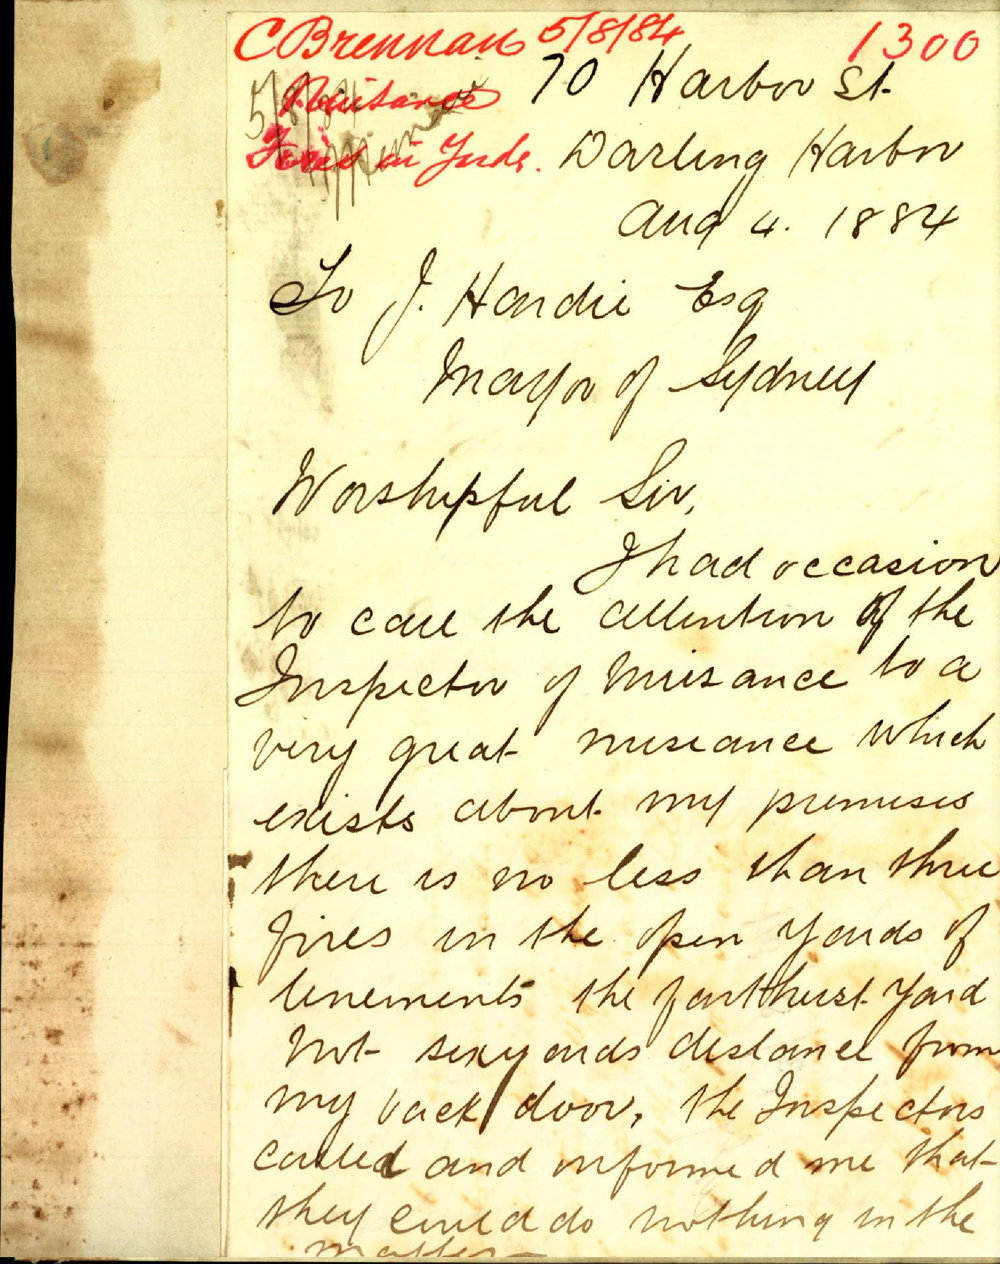 C Brennan 5/8/84 1300
Nuisance
Fires in Yards.
5/8/84
70 Harbor St
Darling Harbor
Aug 4. 1884
To J. Hardie Esq
Mayor of Sydney
Worshipful Sir,
I had occasion
to call the attention of the
Inspector of Nuisance to a
very great nuiseance which
exists about my premises
there is no less than three
fires in the open yards of
tenements the farthest yard
Not six yards distance from
my back door, the Inspectors
called and informed me that
they could do nothing in the
matter